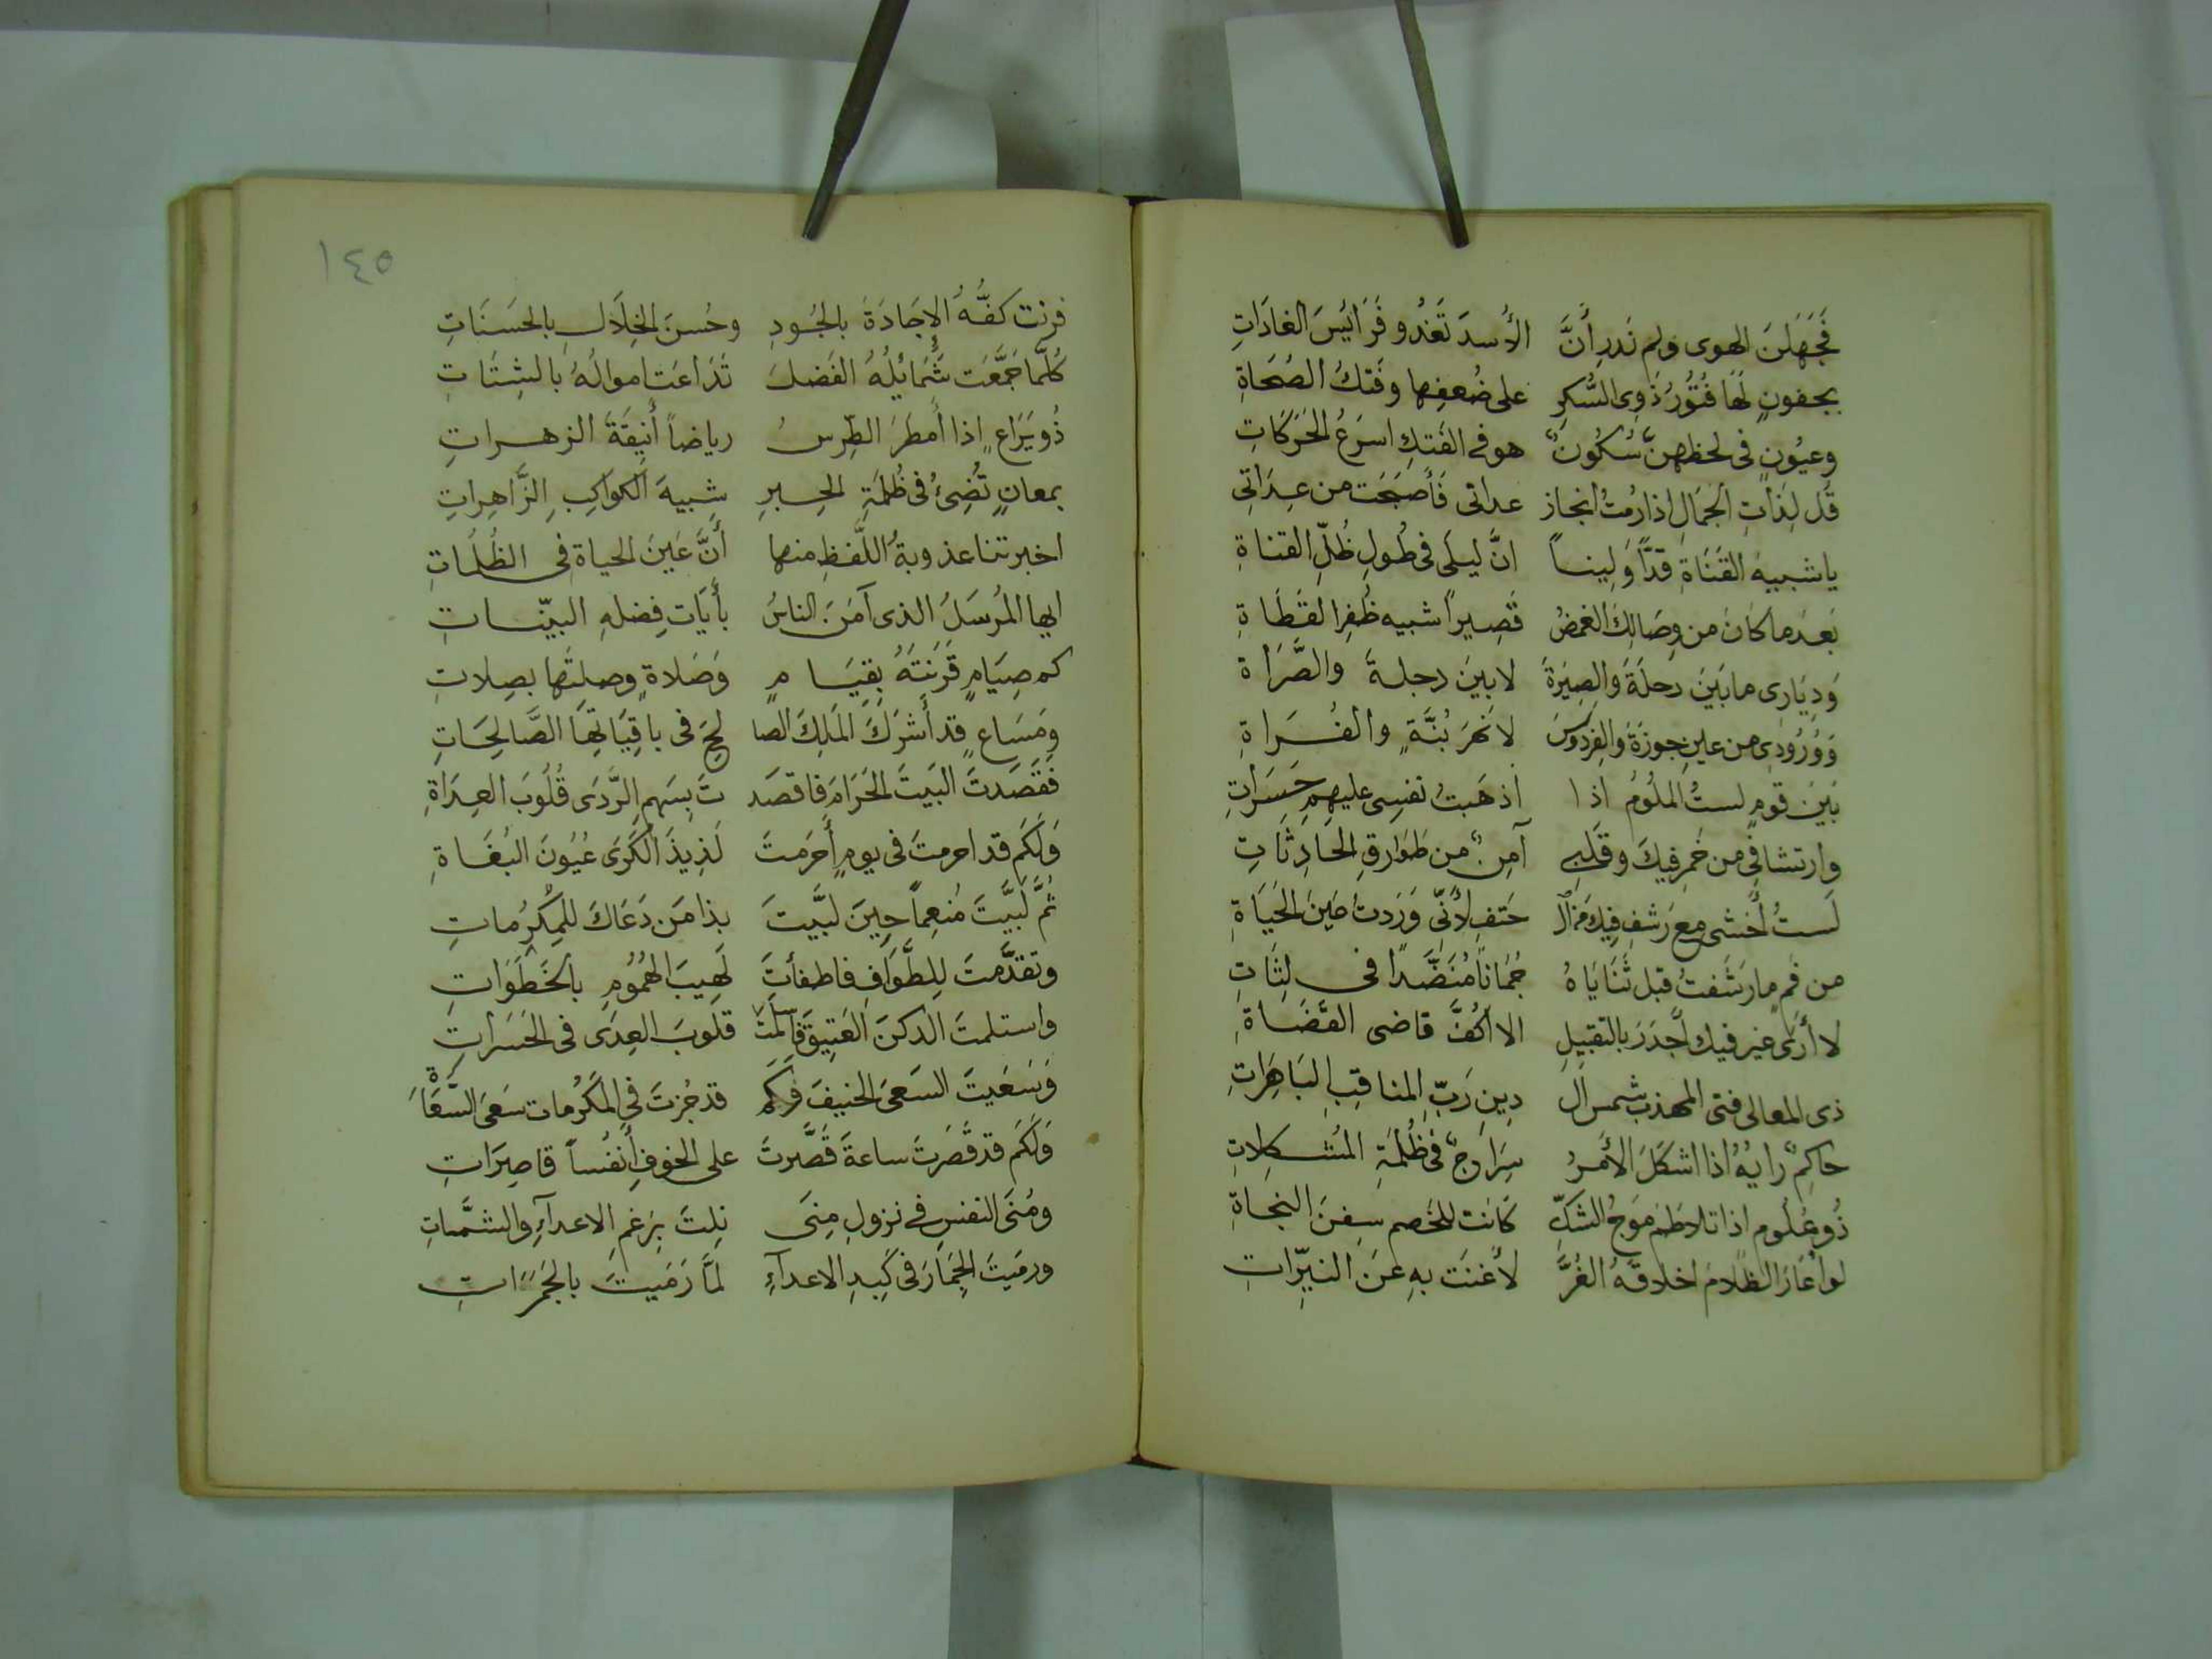 فَجَهَلنَ الهوى ولم نَدرِ أَنَّ الأُسدَ تَغدُو فَرَائِسَ الغادَاتِ
بجفونٍ لَهَا فُتُورُ ذَوِى السُّكرِ على ضُعفِها وفَتكُ الصُحَاةِ
وعيُونٍ فى لحظهنَّ سُكُونٌ هو فى الفَتكِ اسرَعُ الحَرَكَاتِ
قُل لِذَاتِ الجَمَالِ اذا رُمتُ انجاز عداتى فَأَصبَحَت من عِدَاتِى
يا شبيهَ القَنَاةِ قدًّا وَلِيناً انَّ ليلَى فى طُولِ ظُلِّ القناةِ
بَعدَ ما كانَ من وِصَالِكَ الغمضُ قَصِيراً شبيه ظُفرِ القَطَاةِ
وَدِيَارِى ما بَينَ دجلَةَ والصِيَرَةَ لا بَينَ دجلةَ والصَّرَاة
وَوُرُودِى من عينِ جوزَةَ والفِردَوسَ لا نَهرَ بُنَّةٍ والفُراةِ
بَينَ قومٍ لستُ الملُومُ اذا اذهَبتُ نفسِى عليهِمِ حَسَرَاتِ
وارتشافِى من خَمرِ فيكَ وقَلبِى آمِنٌ من طَوَارِقِ الحَادِثَاتِ
لَستُ أَخشى مع رَشفِ فيكَ من الـ حَتفِ لأَنّى وَرَدتُ عَينَ الحَيَاةِ
من فَمٍ ما رَشَفتُ قبل ثَنَايَاهُ جُمَاناً مُنَضَّداً فى لِثَاتِ
لا أَرَى غير فيك أَجدَرَ بالتقبيلِ الا أَكُفَّ قاضى القُضَاةِ
ذى المعالى فتى المهذب شمس ال دِينِ رَبِّ المناقِبِ البَاهِرَاتِ
حاكمٌ رايُهُ اذا اشكَلَ الأَمرُ سِرَاجٌ فى ظُلمَةِ المُشكِلاتِ
ذُو عُلُومٍ اذا تلاطَمَ مَوجُ الشَكِّ كَانت للخَصمِ سفنَ النجاةِ
لو أَعَارَ الظلامَ اخلاقَهُ الغُرَّ لأَغنَت بهِ عَنَ النيِّرَاتِ
قرنت كفُّهُ الإجَادَةَ بالجُودِ وحُسنَ الخِلَالِ بالحسَنَاتِ
كُلَّمَا جَمَّعَت شَمَائِلُهُ الفَضلَ تَدَاعَت اموالُهُ بالشِتَاتِ
ذُو يَرَاعٍ اذا أَمطَرَ الطِّرسُ رياضاً أَنِيقَةَ الزهراتِ
بمعانٍ تُضِىءُ فى ظُلمَةِ الحِبرِ شبيهَ الكَواكِبِ الزَّاهِراتِ
اخبرتنا عذوبةُ اللَّفظِ منها أَنَّ عَينَ الحياةِ فى الظُلُمَاتِ
ايها المُرسَلُ الذى آمَنَ الناسُ بأيَات فِضلهِ البيّناتِ
كم صِيَامٍ قَرَنتَهُ بقِيَامٍ وَصَلاةٍ وصلتَها بصِلاتِ
ومَسَاعٍ قد أَشرَكَ المَلِكَ الصا لحِ فى باقِيَاتِهَا الصَّالِحَاتِ
فَقَصَدتَ البَيتَ الحَرَامَ فاقصَد تَ بِسَهمِ الرَّدَى قُلُوبَ العِدَاةِ
وَلَكَم قد احرمتَ فى يومٍ أَحرَمتَ لَذِيذَ الكَرَى عُيُونَ البُغَاةِ
ثُمَّ لَبَّيتَ مُنعِماً حِينَ لبَّيتَ بذا مَن دَعَاكَ للمكرُماتِ
وتقدَّمتَ لِلطَّوَافِ فاطفأتَ لَهِيبَ الهُمُومِ بالخَطَوَاتِ
واستلمتَ الركنَ العَتِيقَ فأسلَمتَ قلوبَ العِدَى فى الحَسَراتِ
وَسَعَيتَ السَعىَ الحنيفَ فكم قد جُزتَ فى المَكرُمات سَعىَ السُّعَاةِ
وَلَكَم قد قَصَرتَ ساعةَ قَصَّرتَ على الخوفِ أَنفُساً قاصِرَاتِ
ومُنَى النفسِ فى نزولِ مِنَى نِلتَ بِرَغمِ الاعدآءِ والشمَّاتِ
ورمَيتَ الجِمَارَ فى كَبِدِ الاعدآءِ لمَّا رَمَيتَ بالجَمَرَاتِ
١٤٥